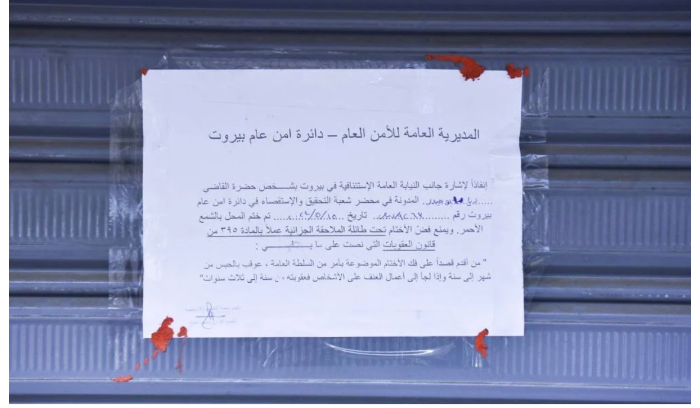 المديرية العامة للأمن العام – دائرة امن عام بيروت
إنفاذاً لإشارة جانب النيابة العامة الإستئنافية في بيروت بشـــخص حضرة القاضي
المدونة في محضر شعبة التحقيق والإستقصاء في دائرة امن عام
بيروت رقم تاريخ تم ختم المحل بالشمع
الأحمر. ويمنع فض الأختام تحت طائلة الملاحقة الجزائية عملاً بالمادة ٣٩٥ من
قانون العقوبات التي نصت على :
" من أقدم قصداً على فك الاختام الموضوعة بأمر من السلطة العامة ، عوقب بالحبس من
شهر إلى سنة وإذا لجأ إلى أعمال العنف على الأشخاص فعقوبته من سنة إلى ثلاث سنوات"